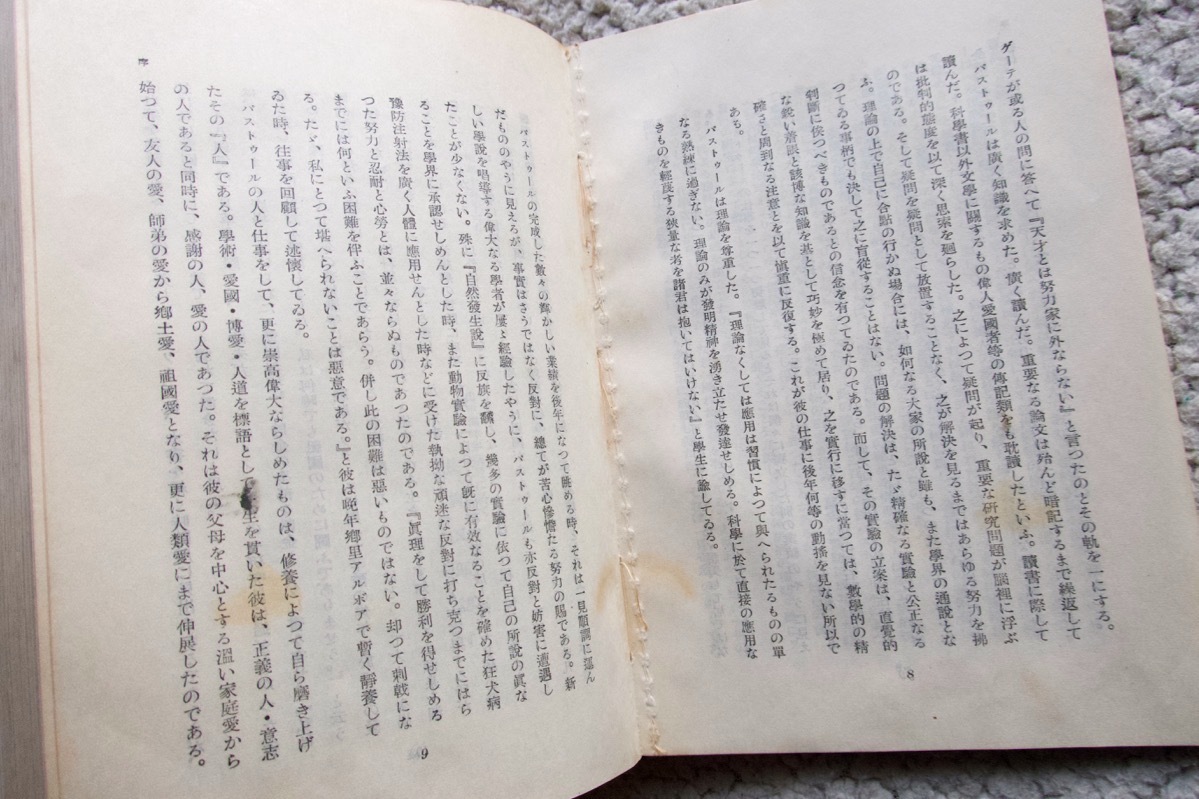 ゲーテが或る人の問に答へて『天才とは努力家に外ならない』と言つたのとその軌を一にする。
パストゥールは廣く知識を求めた。廣く讀んだ。重要なる論文は殆んど暗記するまで繰返して
讀んだ。科學書以外文學に關するもの偉人愛國者等の傳記類をも耽讀したといふ。讀書に際して
は批判的態度を以て深く思索を廻らした。之によつて疑問が起り、重要な研究問題が腦裡に浮ぶ
のである。そして疑問を疑問として放置することなく、之が解決を見るまではあらゆる努力を拂
ふ。理論の上で自己に合點の行かぬ場合には、如何なる大家の所說と雖も、また學界の通說とな
つてゐる事柄でも決して之に盲從することはない。問題の解決は、たゞ精確なる實驗と公正なる
判斷に俟つべきものであるとの信念を有つてゐたのである。而して、その實驗の立案は、直覺的
な銳い着眼と該博な知識を基として巧妙を極めて居り、之を實行に移すに當つては、數學的の精
確さと周到なる注意とを以て愼重に反復する。これが彼の仕事に後年何等の動搖を見ない所以で
ある。
パストゥールは理論を尊重した。『理論なくしては應用は習慣によつて與へられたるものの單
なる熟練に過ぎない。理論のみが發明精神を湧き立たせ發達せしめる。科學に於て直接の應用な
きものを輕蔑する狹量な考を諸君は抱いてはいけない』と學生に諭してる。
8
パストゥールの完成した數々の輝かしい業績を後年になつて眺める時、それは一見順調に運ん
だもののやうに見えるが、事實はさうではなく反對に、總てが苦心慘憺たる努力の賜である。新
しい學說を唱導する偉大なる學者が屢〻經驗したやうに、パストゥールも亦反對と妨害に遭遇し
たことが少なくない。殊に『自然發生說』に反旗を飜し、幾多の實驗に依つて自己の所說の眞な
ることを學界に承認せしめんとした時、また動物實驗によつて旣に有效なることを確めた狂犬病
豫防注射法を廣く人體に應用せんとした時などに受けた執拗な頑迷な反對に打ち克つまでにはら
つた努力と忍耐と心勞とは、並々ならぬものであつたのである。『眞理をして勝利を得せしめる
までには何といふ困難を伴ふことであらう。併し此の困難は惡いものではない。却つて刺戟にな
る。たゞ、私にとつて堪へられないことは惡意である。』と彼は晩年鄕里アルボアで暫く靜養して
ゐた時、往事を回顧して述懷してゐる。
パストゥールの人と仕事をして、更に崇高偉大ならしめたものは、修養によつて自ら磨き上げ
たその『人』である。學術・愛國・博愛・人道を標語として 生を貫いた彼は、正義の人・意志
の人であると同時に、感謝の人、愛の人であつた。それは彼の父母を中心とする溫い家庭愛から
始つて、友人の愛、師弟の愛から鄕土愛、祖國愛となり、更に人類愛にまで伸展したのである。
序
9